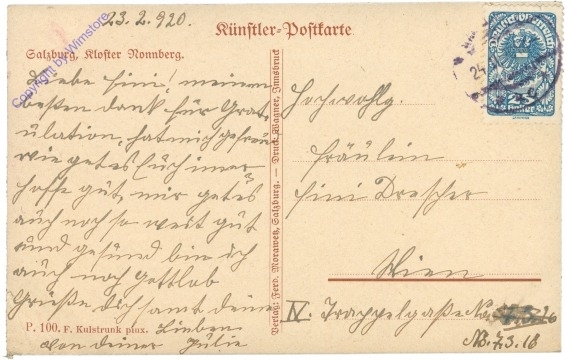 23.2.920.
Künstler-Postkarte
Salzburg, Kloster Nonnberg.
Copyright by Wimstore
Liebe Fini! meinen
besten dank für Grat-
ulation, hat mich gefreu
wie getes Euch imer
hoffe gut, mir getes
auch noch so weit gut
und gesund bin ich
auch noch Gottlob
Grüße dich samt deine
Lieben
von deiner Julie
P. 100. F. Kulstrunk pinx.
Verlag: Ferd. Morawetz, Salzburg. — Druck: Wagner, Innsbruck
Hochwohlg.
Fräulein
Fini Drescher
Wien
IV. Trappelgaße No.
No. 7.3.16